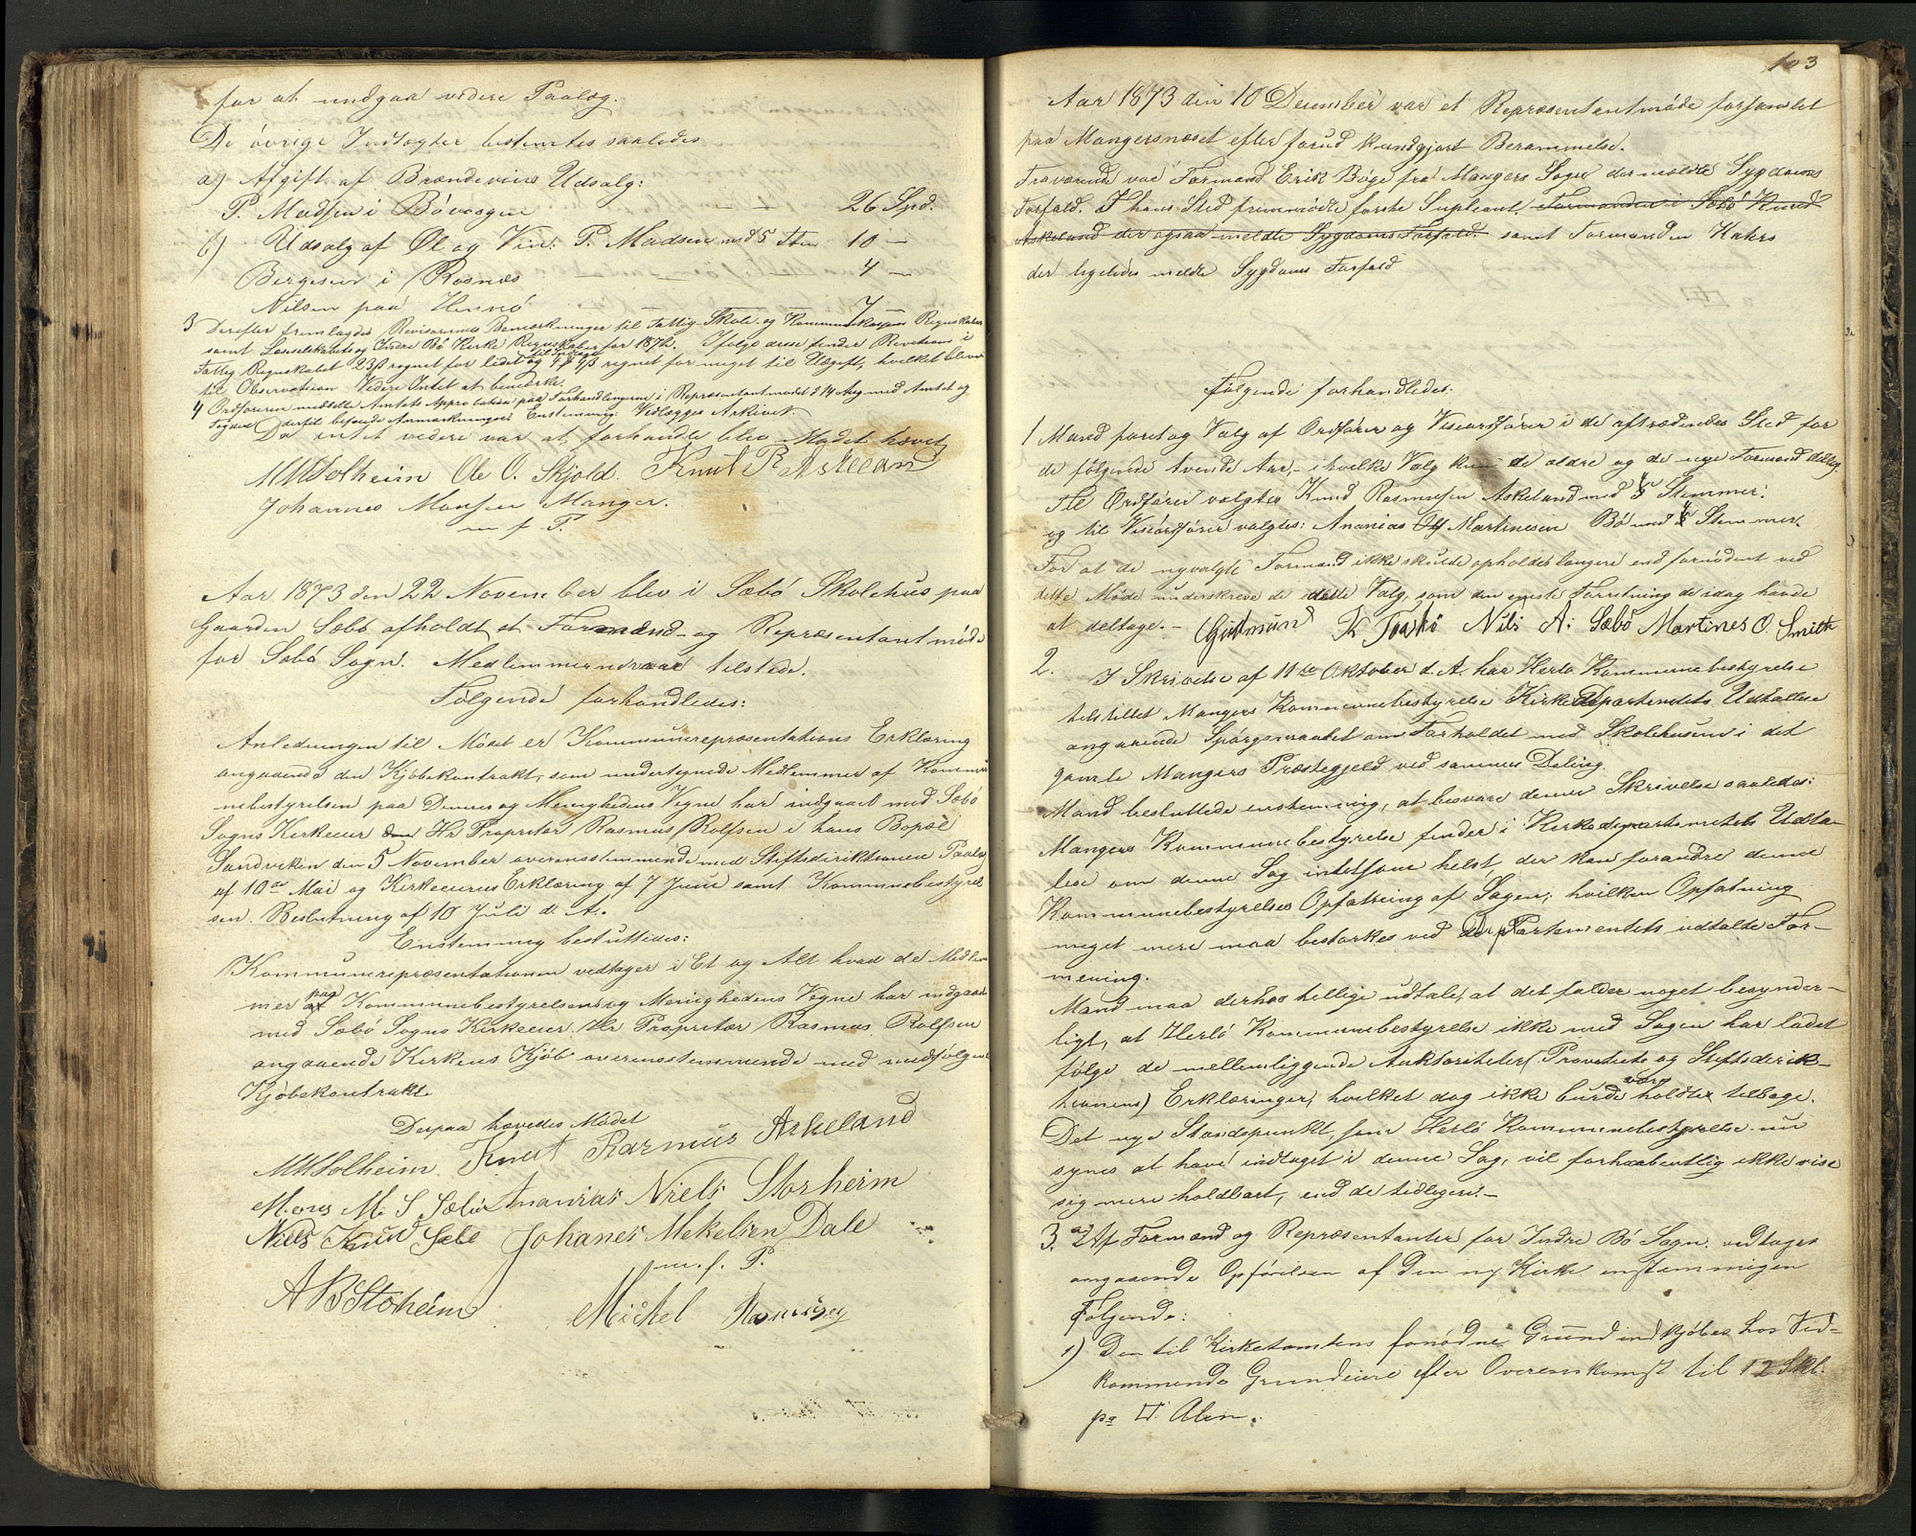 for at undgaa videre Paalæg.
De øvrige Indtægter bestemtes saaledes
a) Afgift af Brændeviins Udsalg:
P. Madsen i Bövaagen 26 Spd.
b) Udsalg af Øl og Vin: P. Madsen med 5 10 —
Bergesen i Rosnæs — 4 —
Nilsen paa Hennö — 7 —
3 Derefter fremlagdes Revisorernes Bemærkninger til Fattig- Skole- og Kommunekassens Regnskaber
samt Indre Bö Kirke Regnskaber for 1872. Ifølge disse finder Revisionen i
Fattig Regnskabet 23ß regnet for lidet til Indtægt og regnet for meget til Udgift, hvilket bliver
til Observation. Videre Intet at bemærke.
4 Ordföreren meddelte Amtets Approbation paa Forhandlingerne i Repræsentantmødet d 14 Aug med Amtet og
Fogden dertil beføiede Anmærkninger. Enstemmig: Vedlægges Arkivet.
Da intet videre var at forhandle blev Mødet hævet
M M Solheim Ole O. Skjold. Knut R Askeland
Johannes Monsen Manger.
m f P.
Aar 1873 den 22 November blev i Sæbö Skolehus paa
Gaarden Sæbö afholdt et Formænd- og Repræsentantmöde
for Sæbö Sogn. Medlemmerne var tilstede.
Følgende forhandledes:
Anledningen til Mödet er Kommunerepræsentationens Erklæring
angaaende den Kjöbekontrakt, som undertegnede Medlemmer af Kommu-
nebestyrelsen paa Dennes og Menighedens Vegne har indgaaet med Sæbö
Sogns Kirkeeier Hr Proprietær Rasmus Rolfsen i hans Bopæl
Sandviken den 5 November overensstemmende med Stiftsdirektionens Paalæg
af 10de Mai og Kirkeeierens Erklæring af 7 Juni samt Kommunebestyrel-
sen. Beslutning af 10 Juli d. A.
Enstemmig besluttedes:
Kommunerepræsentationen vedtager i Et og Alt hvad de Medlem-
mer paa Kommunebestyrelsens og Menighedens Vegne har indgaaet
med Sæbö Sogns Kirkeeier, Hr Proprietær Rasmus Rolfsen
angaaende Kirkens Kjöb overensstemmende med medfølgende
Kjøbekontrakt.
Derpaa hævedes Mödet
M M Solheim. Knut Rasmus Askeland
Mons M. S Sæbö Ananias Niels Storheim
Niels Knud Sæbö Johanes Mekelsen Dale
m. f. P.
A B Stoheim Mickel
103
Aar 1873 den 10 December var et Repræsentantmøde forsamlet
paa Mangersnæset efter forud kundgjort Berammelse.
Fraværende var Formand Erik Böge fra Mangers Sogn der meldte Sygdoms
Forfald. I hans Sted fremmødte første Supleant. Formanden i Sæbö Knud
Askeland der ogsaa meldte Sygdoms Forfald. samt Formanden
der ligeledes meldte Sygdoms Forfald
Følgende forhandledes:
1 Mand foretog Valg af Ordfører og Viseordfører i de aftrædendes Sted for
de følgende tvende Aar, i hvilke Valg kun de ældre og de nye Formænd deltog.
Til Ordfører valgtes Knud Rasmussen Askeland med Stemmer:
og til Viseordfører valgtes: Ananias Martinesen Bö med Stemmer.
For at de nyvalgte Formænd ikke skulde opholdes længere end fornødent ved
dette Møde underskreve de dette Valg, som den eneste Forretning de idag havde
at deltage. — Gudmund K Toskö Nils A: Sæbö Martines O. Smith
2. I Skrivelse af 11te Oktober d. A. har Herlö Kommunebestyrelse
tilstillet Mangers Kommunebestyrelse Kirkedepartementets Udtallelse
angaaende Spørgsmaalet om Forholdet med Skolehusene i det
gamle Mangers Præstegjeld ved sammes Deling.
Mand besluttede enstemmig, at besvare denne Skrivelse saaledes:
Mangers Kommunebestyrelse finder i Kirkedepartementets Udta-
lese om denne Sag intetsom helst, der kan forandre denne
Kommunebestyrelses Opfatning af Sagen, hvilken Opfatning
meget mere maa bestærkes ved Departementets udtalte For-
mening.
Mand maa derhos tillige udtale, at det falder noget besynder-
ligt, at Herlö Kommunebestyrelse ikke med Sagen har ladet
følge de mellemliggende Auktoriteter (Provstiets og Stiftsdirek-
tionens) Erklæringer, hvilket dog ikke burde være holdte tilbage.
Det nye Standspunkt, som Herlö Kommunebestyrelse nu
synes at have indtaget i denne Sag, vil forhaabentlig ikke vise
sig mere holdbart, end de tidligere. —
3. a) Af Formænd og Repræsentanter for Indre Bö Sogn vedtoges
angaaende Opførelsen af den ny Kirke enstemmigen
Følgende:
1) Den til Kirketomtens fornødne Grund indkjøbes hos Ved-
kommende Grundeiere efter Overenskomst til 12 Skl.
pr □ Alen.